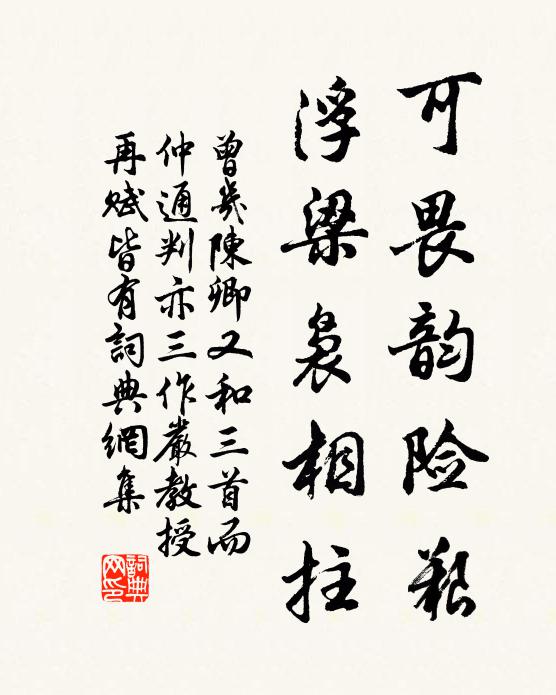 可畏韵险艰
浮梁袅相拄
曾幾陳卿又和三首而
仲通判亦三作嚴教授
再赋皆有詞典網集
詞典网印